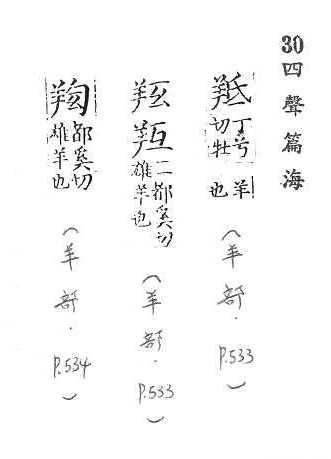 30四聲篇海
羝丁兮切牡羊也(羊部.P.533)
二都奚切雄羊也(羊部.P.533)
都奚切雄羊也(羊部.P.534)